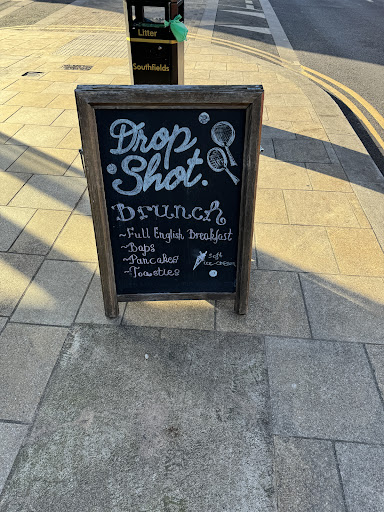 Litter
Southfields
Drop
Shot.
Brunch
~Full English Breakfast
~Baps
~Pancakes
~Toasties
Soft
ice-cream